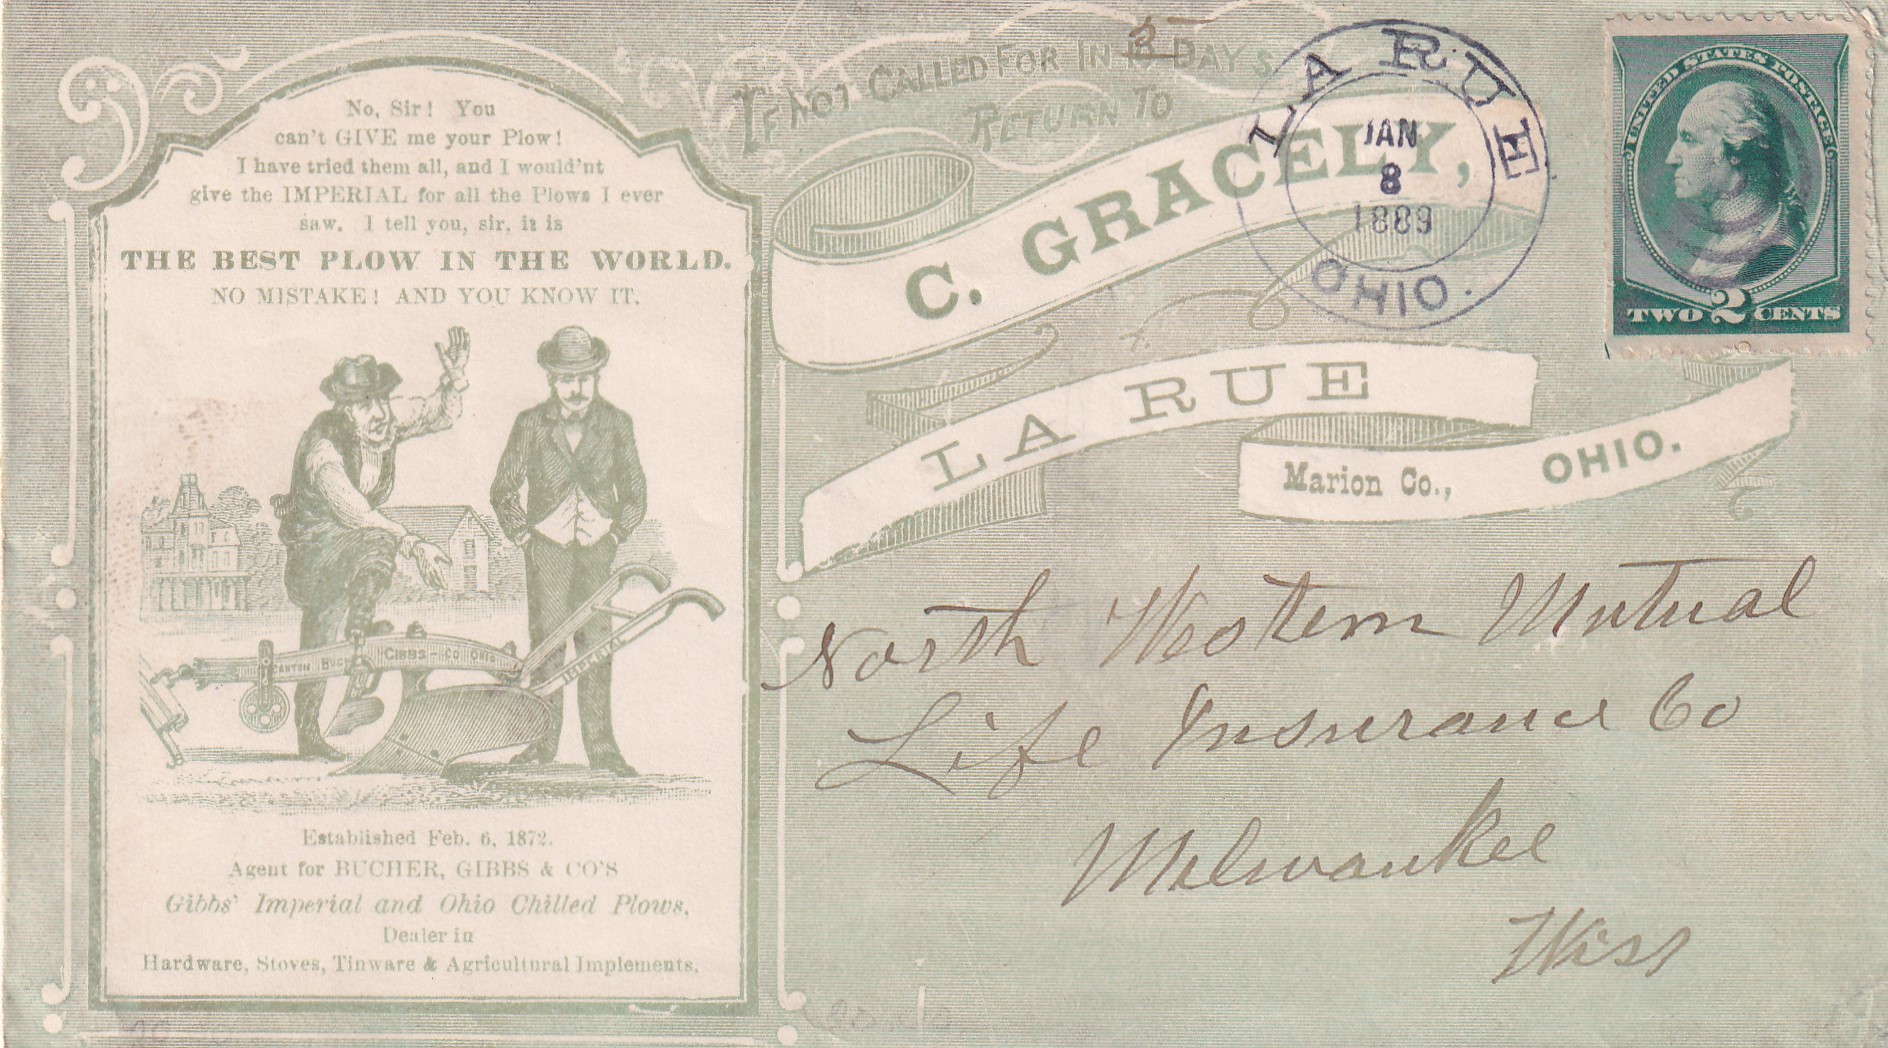 No, Sir! You
can't GIVE me your Plow!
I have tried them all, and I would'nt
give the IMPERIAL for all the Plows I ever
saw. I tell you, sir, it is
THE BEST PLOW IN THE WORLD.
NO MISTAKE! AND YOU KNOW IT.
GIBBS - CO OHIO
IMPERIAL
Established Feb. 6, 1872.
Agent for BUCHER, GIBBS & CO'S
Gibbs' Imperial and Ohio Chilled Plows.
Dealer in
Hardware, Stoves, Tinware & Agricultural Implements.
IF NOT CALLED FOR IN DAYS
RETURN TO
C. GRACELY,
LA RUE
Marion Co., OHIO.
LA RUE
JAN
8
1889
OHIO.
UNITED STATES POSTAGE
TWO 2 CENTS
North Western Mutual
Life Insurance Co
Milwaukee
Wiss